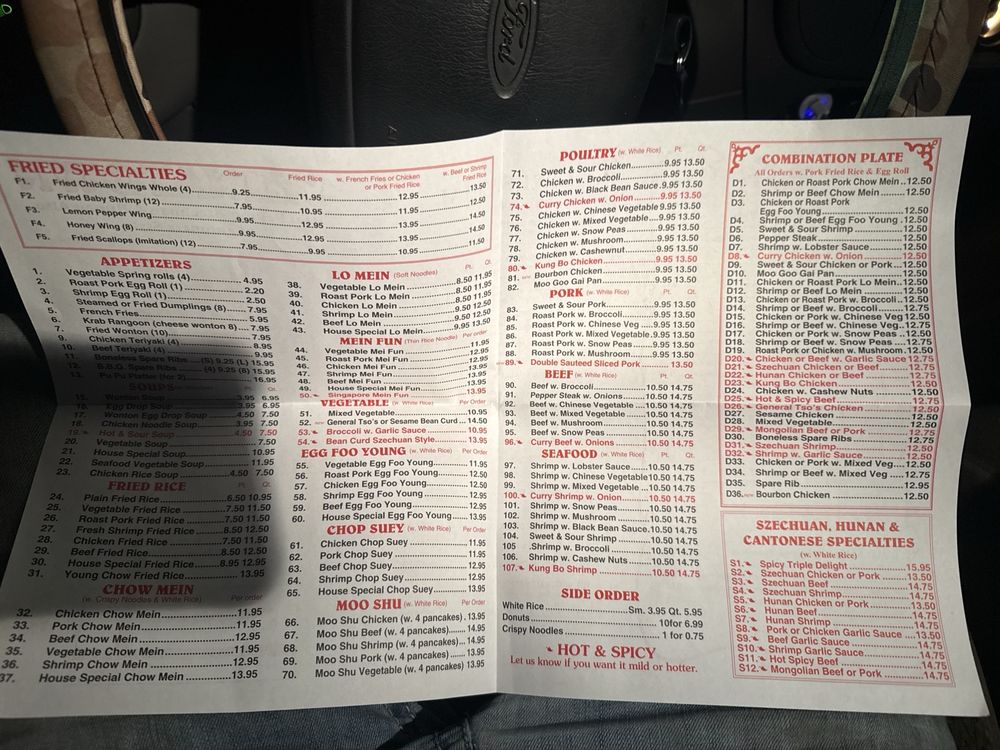 Ford
FRIED SPECIALTIES
Order Fried Rice w. French Fries or Chicken or Pork Fried Rice w. Beef or Shrimp Fried Rice
F1. Fried Chicken Wings Whole (4) 9.25 11.95 12.95 13.50
F2. Fried Baby Shrimp (12) 7.95 10.95 11.95
F3. Lemon Pepper Wing 9.95 12.95 13.95
F4. Honey Wing (8) 9.95 12.95 13.95
F5. Fried Scallops (Imitation) (12) 7.95 9.95 10.95 11.50
APPETIZERS
1. Vegetable Spring rolls (4) 4.95
2. Roast Pork Egg Roll (1) 2.20
3. Shrimp Egg Roll (1) 2.50
4. Steamed or Fried Dumplings (8) 7.95
5. French Fries 5.95
6. Krab Rangoon (cheese wonton 8) 7.95
7. Fried Wonton (10) 7.95
9. Chicken Teriyaki (4) 8.95
10. Beef Teriyaki (4) 9.95
11. Boneless Spare Ribs (S) 9.25 (L) 15.95
12. B.B.Q. Spare Ribs (4) 9.25 (8) 15.95
13. Pu Pu Platter (for 2) 16.95
SOUPS
15. Wonton Soup 3.95 6.95
16. Egg Drop Soup 3.95 6.95
17. Wonton Egg Drop Soup 4.50 7.50
18. Chicken Noodle Soup 3.95 7.50
19. Hot & Sour Soup 4.50 7.50
20. Vegetable Soup 7.50
21. House Special Soup 10.95
22. Seafood Vegetable Soup 11.95
23. Chicken Rice Soup 4.50 7.50
FRIED RICE
24. Plain Fried Rice 6.50 10.95
25. Vegetable Fried Rice 7.50 11.50
26. Roast Pork Fried Rice 7.50 11.50
27. Fresh Shrimp Fried Rice 8.50 12.50
28. Chicken Fried Rice 7.50 11.50
29. Beef Fried Rice 8.50 12.50
30. House Special Fried Rice 8.95 12.95
31. Young Chow Fried Rice 13.95
CHOW MEIN
(w. Crispy Noodles & White Rice) Per order
32. Chicken Chow Mein 11.95
33. Pork Chow Mein 11.95
34. Beef Chow Mein 12.95
35. Vegetable Chow Mein 11.95
36. Shrimp Chow Mein 12.95
37. House Special Chow Mein 13.95
LO MEIN (Soft Noodles) Pt. Qt.
38. Vegetable Lo Mein 8.50 11.95
39. Roast Pork Lo Mein 8.50 11.95
40. Chicken Lo Mein 8.50 11.95
41. Shrimp Lo Mein 8.50 12.50
42. Beef Lo Mein 8.50 12.50
43. House Special Lo Mein 9.95 13.50
MEIN FUN (Thin Rice Noodle) Per Order
44. Vegetable Mei Fun 11.95
45. Roast Pork Mei Fun 12.95
46. Chicken Mei Fun 12.95
47. Shrimp Mei Fun 13.95
48. Beef Mei Fun 13.95
49. House Special Mei Fun 13.95
50. Singapore Mein Fun 13.95
VEGETABLE (w. White Rice) Per Order
51. Mixed Vegetable 10.95
52. General Tso's or Sesame Bean Curd 14.50
53. Broccoli w. Garlic Sauce 10.95
54. Bean Curd Szechuan Style 13.95
EGG FOO YOUNG (w. White Rice) Per Order
55. Vegetable Egg Foo Young 11.95
56. Roast Pork Egg Foo Young 12.50
57. Chicken Egg Foo Young 12.50
58. Shrimp Egg Foo Young 12.95
59. Beef Egg Foo Young 12.95
60. House Special Egg Foo Young 13.95
CHOP SUEY (w. White Rice) Per Order
61. Chicken Chop Suey 11.95
62. Pork Chop Suey 11.95
63. Beef Chop Suey 12.95
64. Shrimp Chop Suey 12.95
65. House Special Chop Suey 13.95
MOO SHU (w. White Rice) Per Order
66. Moo Shu Chicken (w. 4 pancakes) 13.95
67. Moo Shu Beef (w. 4 pancakes) 14.95
68. Moo Shu Shrimp (w. 4 pancakes) 14.95
69. Moo Shu Pork (w. 4 pancakes) 13.95
70. Moo Shu Vegetable (w. 4 pancakes) 13.95
POULTRY (w. White Rice) Pt. Qt.
71. Sweet & Sour Chicken 9.95 13.50
72. Chicken w. Broccoli 9.95 13.50
73. Chicken w. Black Bean Sauce 9.95 13.50
74. Curry Chicken w. Onion 9.95 13.50
75. Chicken w. Chinese Vegetable 9.95 13.50
76. Chicken w. Mixed Vegetable 9.95 13.50
77. Chicken w. Snow Peas 9.95 13.50
78. Chicken w. Mushroom 9.95 13.50
79. Chicken w. Cashewnut 9.95 13.50
80. Kung Bo Chicken 9.95 13.50
81. Bourbon Chicken 9.95 13.50
82. Moo Goo Gai Pan 9.95 13.50
PORK (w. White Rice) Pt. Qt.
83. Sweet & Sour Pork 9.95 13.50
84. Roast Pork w. Broccoli 9.95 13.50
85. Roast Pork w. Chinese Veg 9.95 13.50
86. Roast Pork w. Mixed Vegetable 9.95 13.50
87. Roast Pork w. Snow Peas 9.95 13.50
88. Roast Pork w. Mushroom 9.95 13.50
89. Double Sauteed Sliced Pork 13.50
BEEF (w. White Rice) Pt. Qt.
90. Beef w. Broccoli 10.50 14.75
91. Pepper Steak w. Onions 10.50 14.75
92. Beef w. Chinese Vegetable 10.50 14.75
93. Beef w. Mixed Vegetable 10.50 14.75
94. Beef w. Mushroom 10.50 14.75
95. Beef w. Snow Peas 10.50 14.75
96. Curry Beef w. Onions 10.50 14.75
SEAFOOD (w. White Rice) Pt. Qt.
97. Shrimp w. Lobster Sauce 10.50 14.75
98. Shrimp w. Chinese Vegetable 10.50 14.75
99. Shrimp w. Mixed Vegetable 10.50 14.75
100. Curry Shrimp w. Onion 10.50 14.75
101. Shrimp w. Snow Peas 10.50 14.75
102. Shrimp w. Mushroom 10.50 14.75
103. Shrimp w. Black Bean Sauce 10.50 14.75
104. Sweet & Sour Shrimp 10.50 14.75
105 .Shrimp w. Broccoli 10.50 14.75
106. Shrimp w. Cashew Nuts 10.50 14.75
107. Kung Bo Shrimp 10.50 14.75
SIDE ORDER
White Rice Sm. 3.95 Qt. 5.95
Donuts 10for 6.99
Crispy Noodles 1 for 0.75
HOT & SPICY
Let us know if you want it mild or hotter.
COMBINATION PLATE
All Orders w. Pork Fried Rice & Egg Roll
D1. Chicken or Roast Pork Chow Mein 12.50
D2. Shrimp or Beef Chow Mein 12.50
D3. Chicken or Roast Pork
Egg Foo Young 12.50
D4. Shrimp or Beef Egg Foo Young 12.50
D5. Sweet & Sour Shrimp 12.50
D6. Pepper Steak 12.50
D7. Shrimp w. Lobster Sauce 12.50
D8. Curry Chicken w. Onion 12.50
D9. Sweet & Sour Chicken or Pork 12.50
D10. Moo Goo Gai Pan 12.50
D11. Chicken or Roast Pork Lo Mein 12.50
D12. Shrimp or Beef Lo Mein 12.50
D13. Chicken or Roast Pork w. Broccoli 12.50
D14. Shrimp or Beef w. Broccoli 12.50
D15. Chicken or Pork w. Chinese Veg 12.50
D16. Shrimp or Beef w. Chinese Veg 12.75
D17. Chicken or Pork w. Snow Peas 12.50
D18. Shrimp or Beef w. Snow Peas 12.75
D19. Roast Pork or Chicken w. Mushroom 12.50
D20. Chicken or Beef w. Garlic Sauce 12.75
D21. Szechuan Chicken or Beef 12.75
D22. Hunan Chicken or Beef 12.75
D23. Kung Bo Chicken 12.50
D24. Chicken w. Cashew Nuts 12.50
D25. Hot & Spicy Beef 12.75
D26. General Tso's Chicken 12.50
D27. Sesame Chicken 12.50
D28. Mixed Vegetable 12.50
D29. Mongolian Beef or Pork 12.75
D30. Boneless Spare Ribs 12.50
D31. Szechuan Shrimp 12.75
D32. Shrimp w. Garlic Sauce 12.75
D33. Chicken or Pork w. Mixed Veg 12.50
D34. Shrimp or Beef w. Mixed Veg 12.75
D35. Spare Rib 12.95
D36. Bourbon Chicken 12.50
SZECHUAN, HUNAN &
CANTONESE SPECIALTIES
(w. White Rice)
S1. Spicy Triple Delight 15.95
S2. Szechuan Chicken or Pork 13.50
S3. Szechuan Beef 14.75
S4. Szechuan Shrimp 14.75
S5. Hunan Chicken or Pork 13.50
S6. Hunan Beef 14.75
S7. Hunan Shrimp 14.75
S8. Pork or Chicken Garlic Sauce 13.50
S9. Beef Garlic Sauce 14.75
S10. Shrimp Garlic Sauce 14.75
S11. Hot Spicy Beef 14.75
S12. Mongolian Beef or Pork 14.75